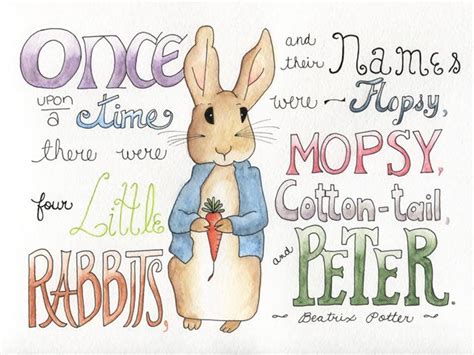 ONCE
upon
a time
there were
four Little
RABBITS,
and
their Names
were ~ Flopsy,
MOPSY,
Cotton-tail,
and PETER.
~ Beatrix Potter ~